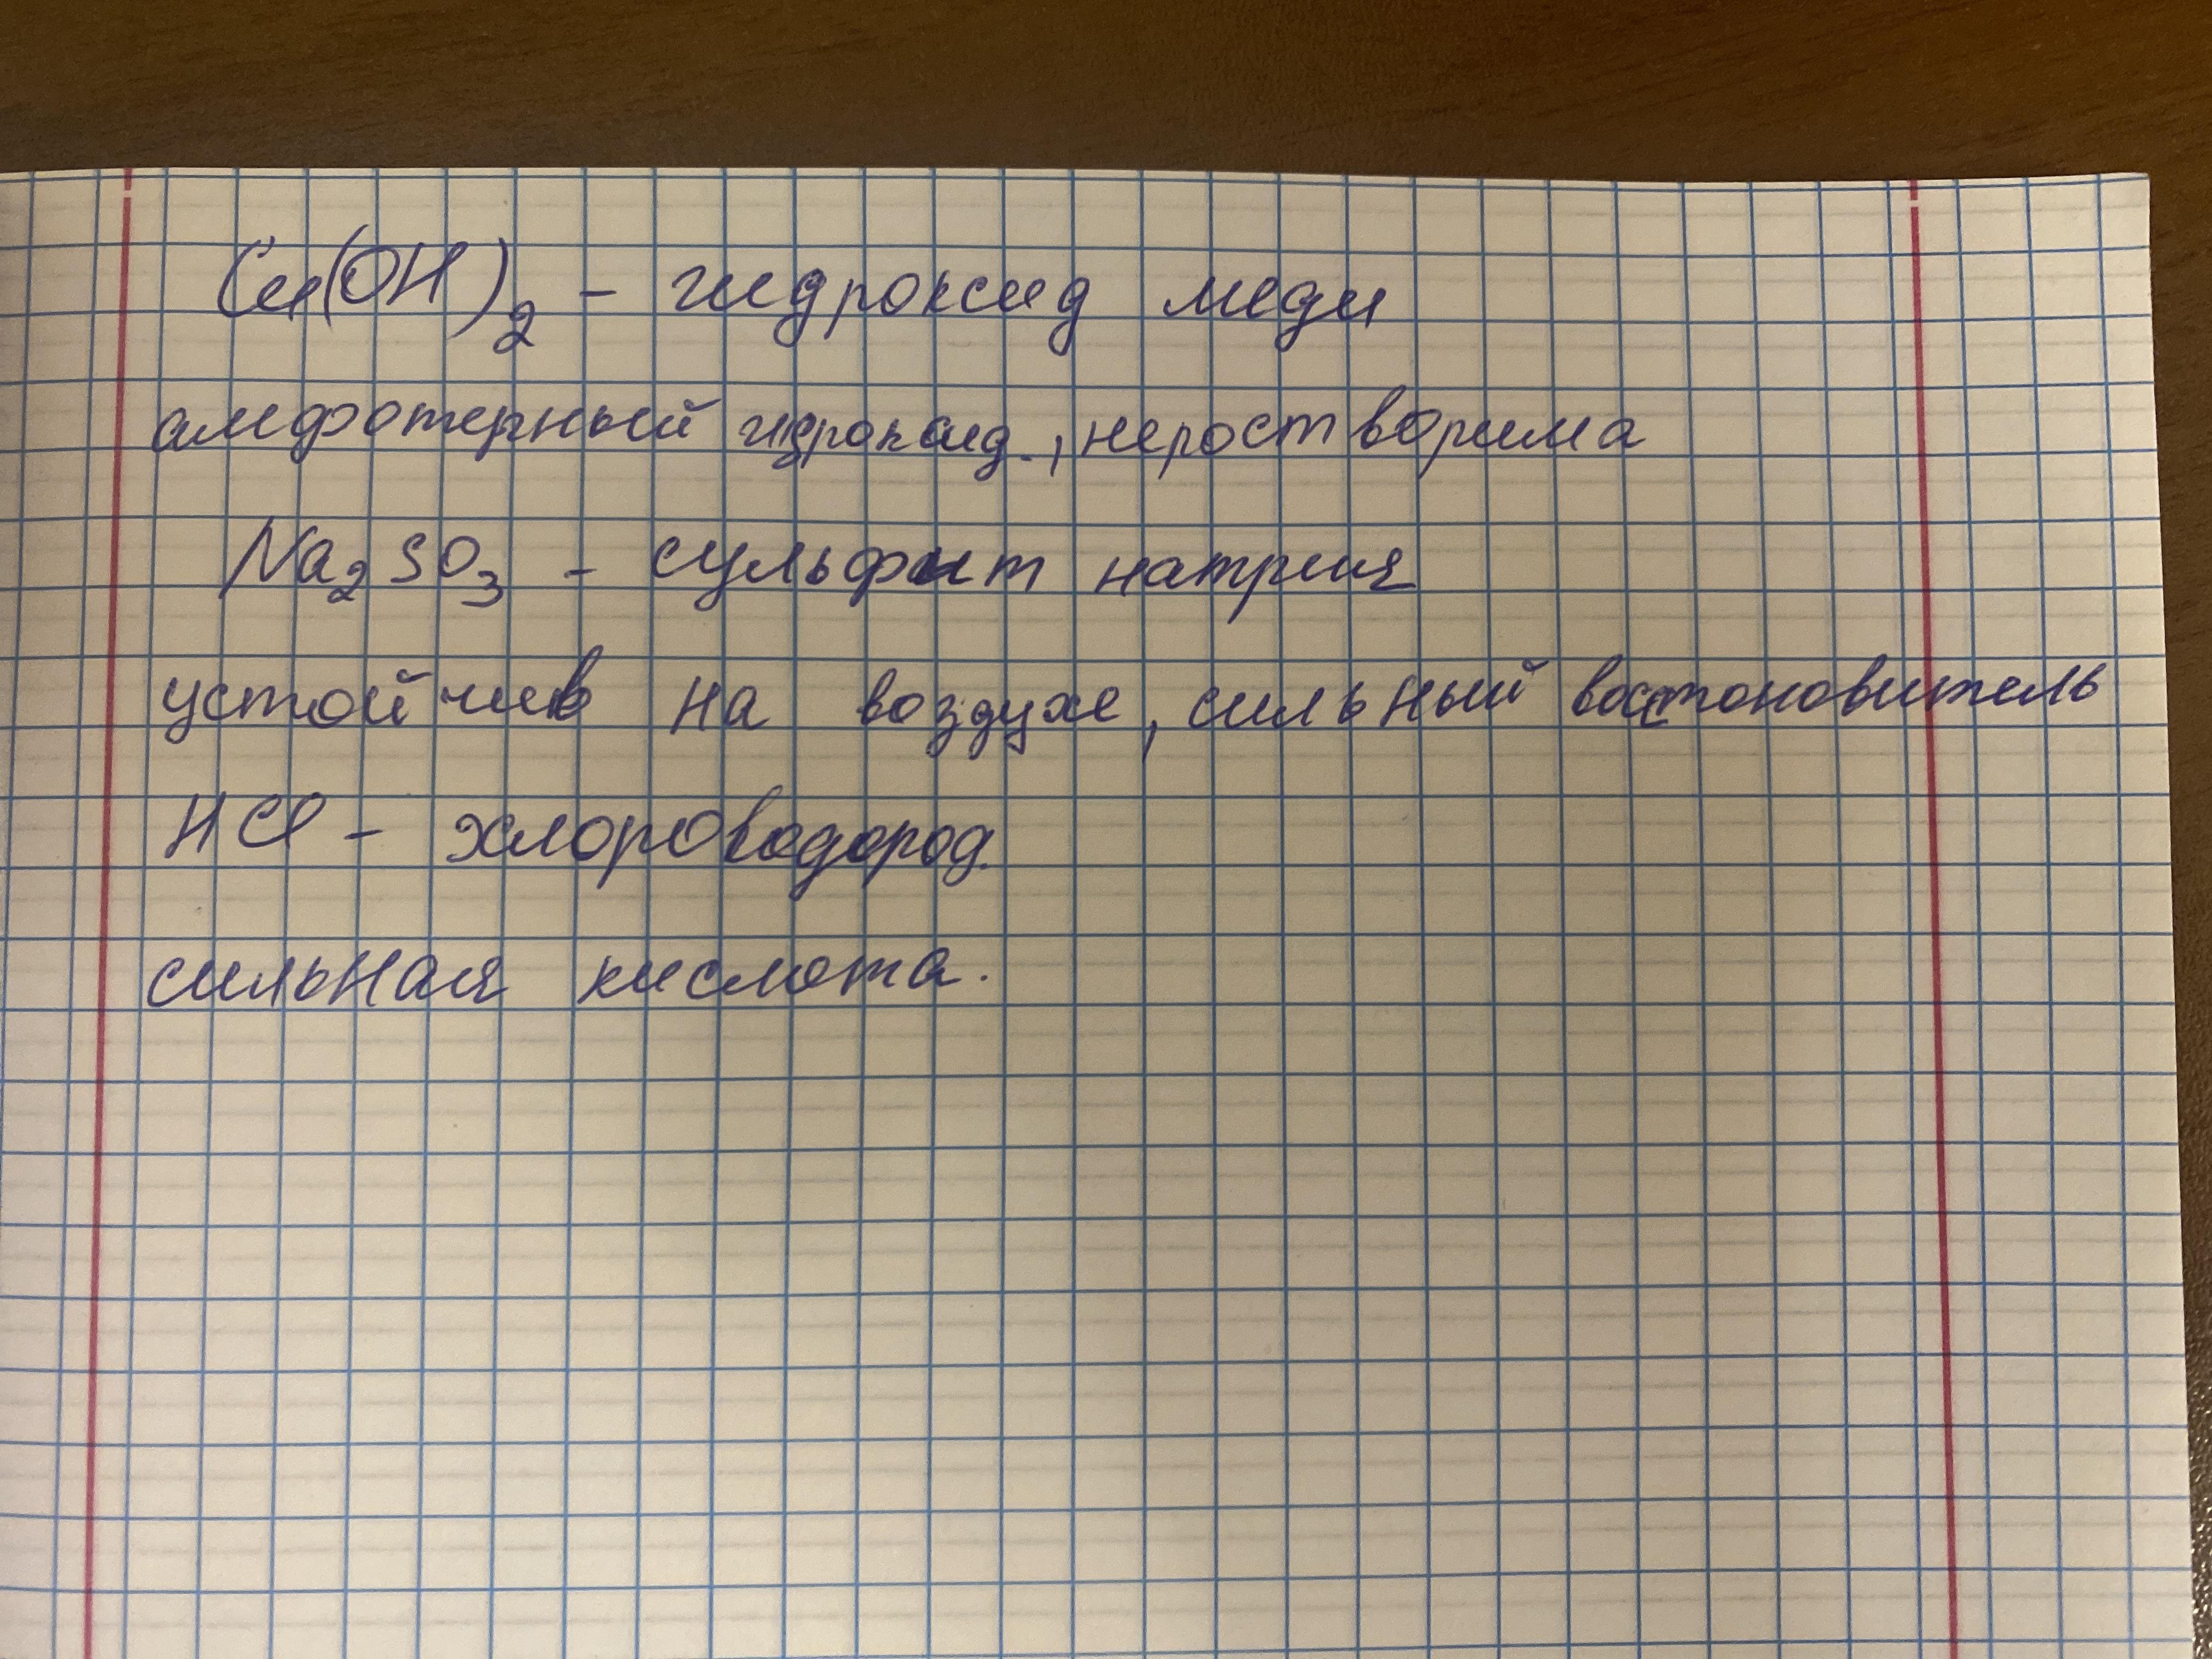 Cu(OH)₂ - гидроксид меди
амфотерный гидроксид., неростворима
Na₂SO₃ - сульфит натрия
устойчив на воздухе, сильный восстоновитель
HCl - хлороводород.
сильная кислота.